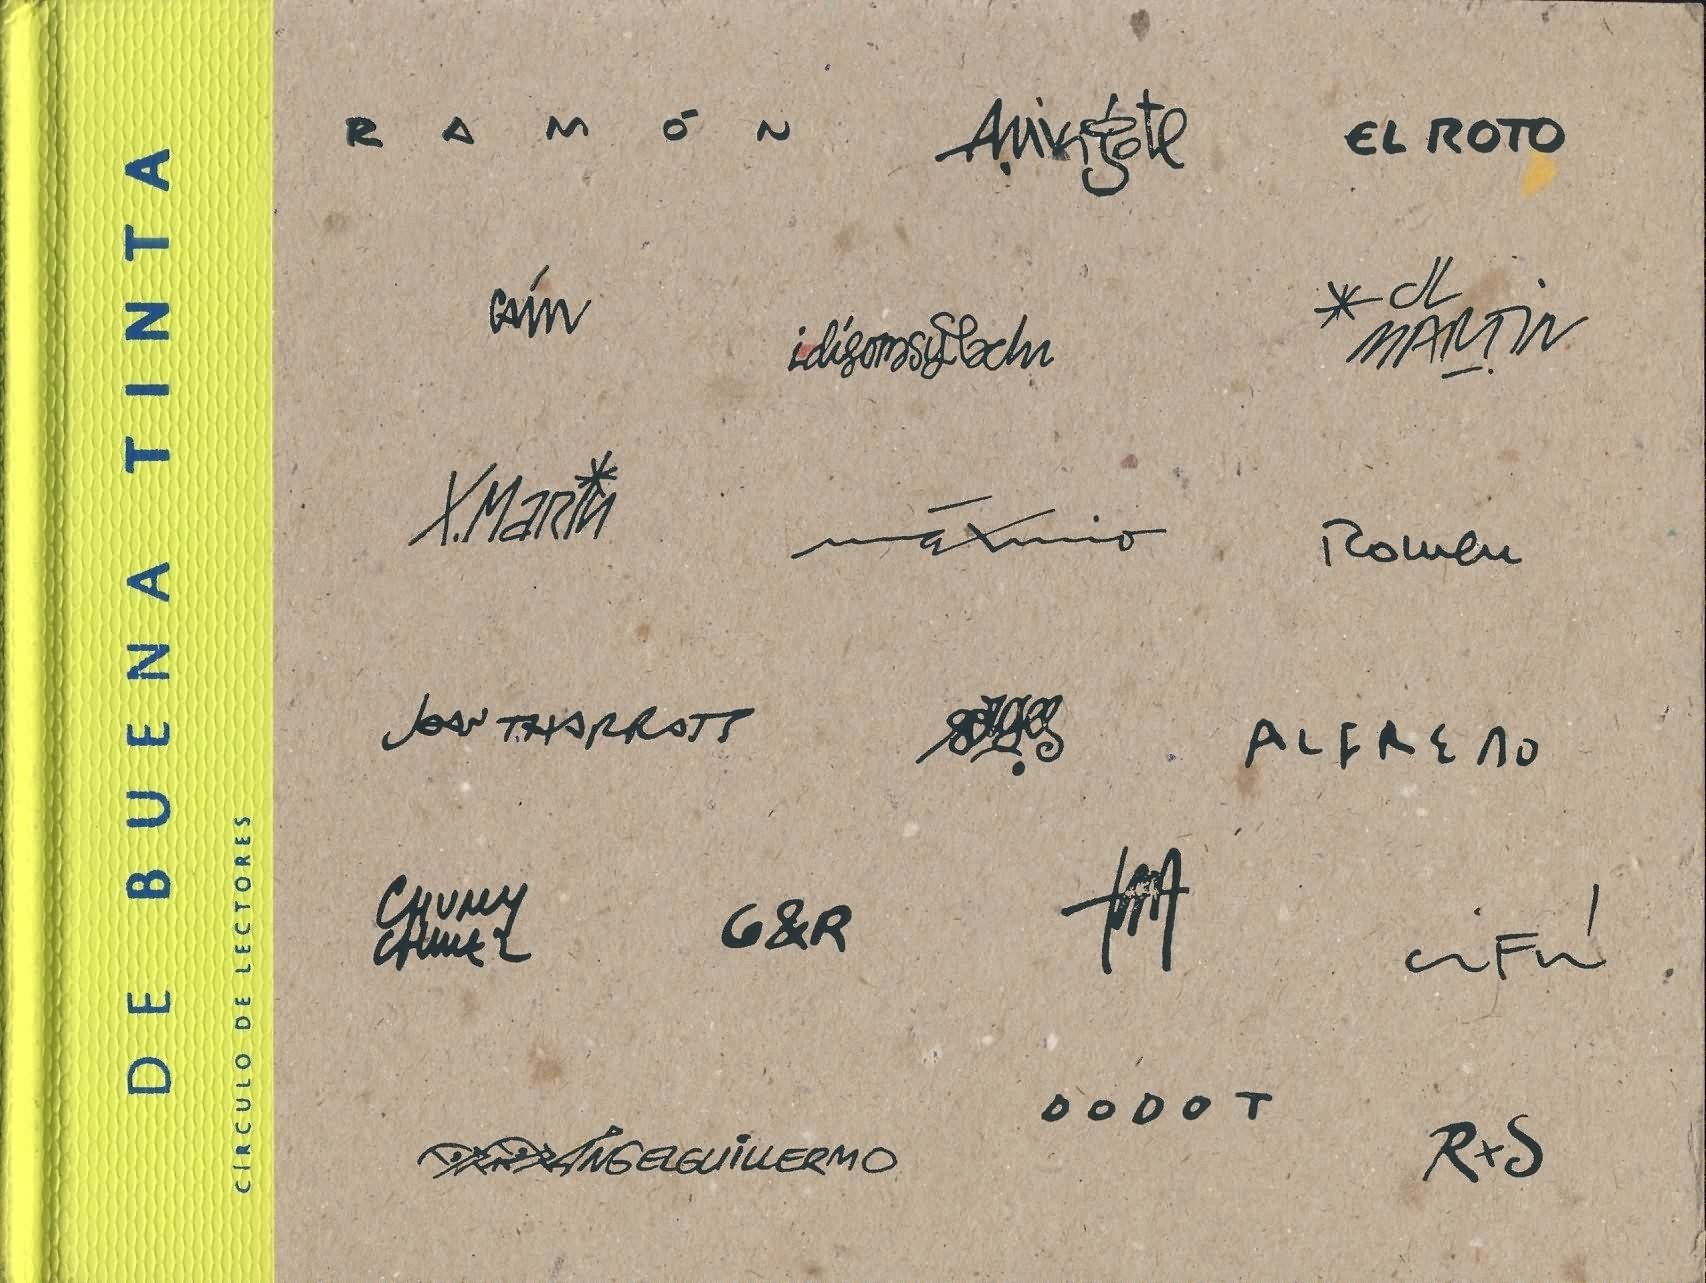 DE BUENA TINTA
CÍRCULO DE LECTORES
RAMÓN
EL ROTO
CAÍN
idígorasyPachi
JL
MARTIN
X.MARTIN
máximo
Romeu
JOAN THARRATS
ALFREDO
CHUMY
CHUMEZ
G&R
CIFRÉ
ÁNGELGUILLERMO
DODOT
RXS